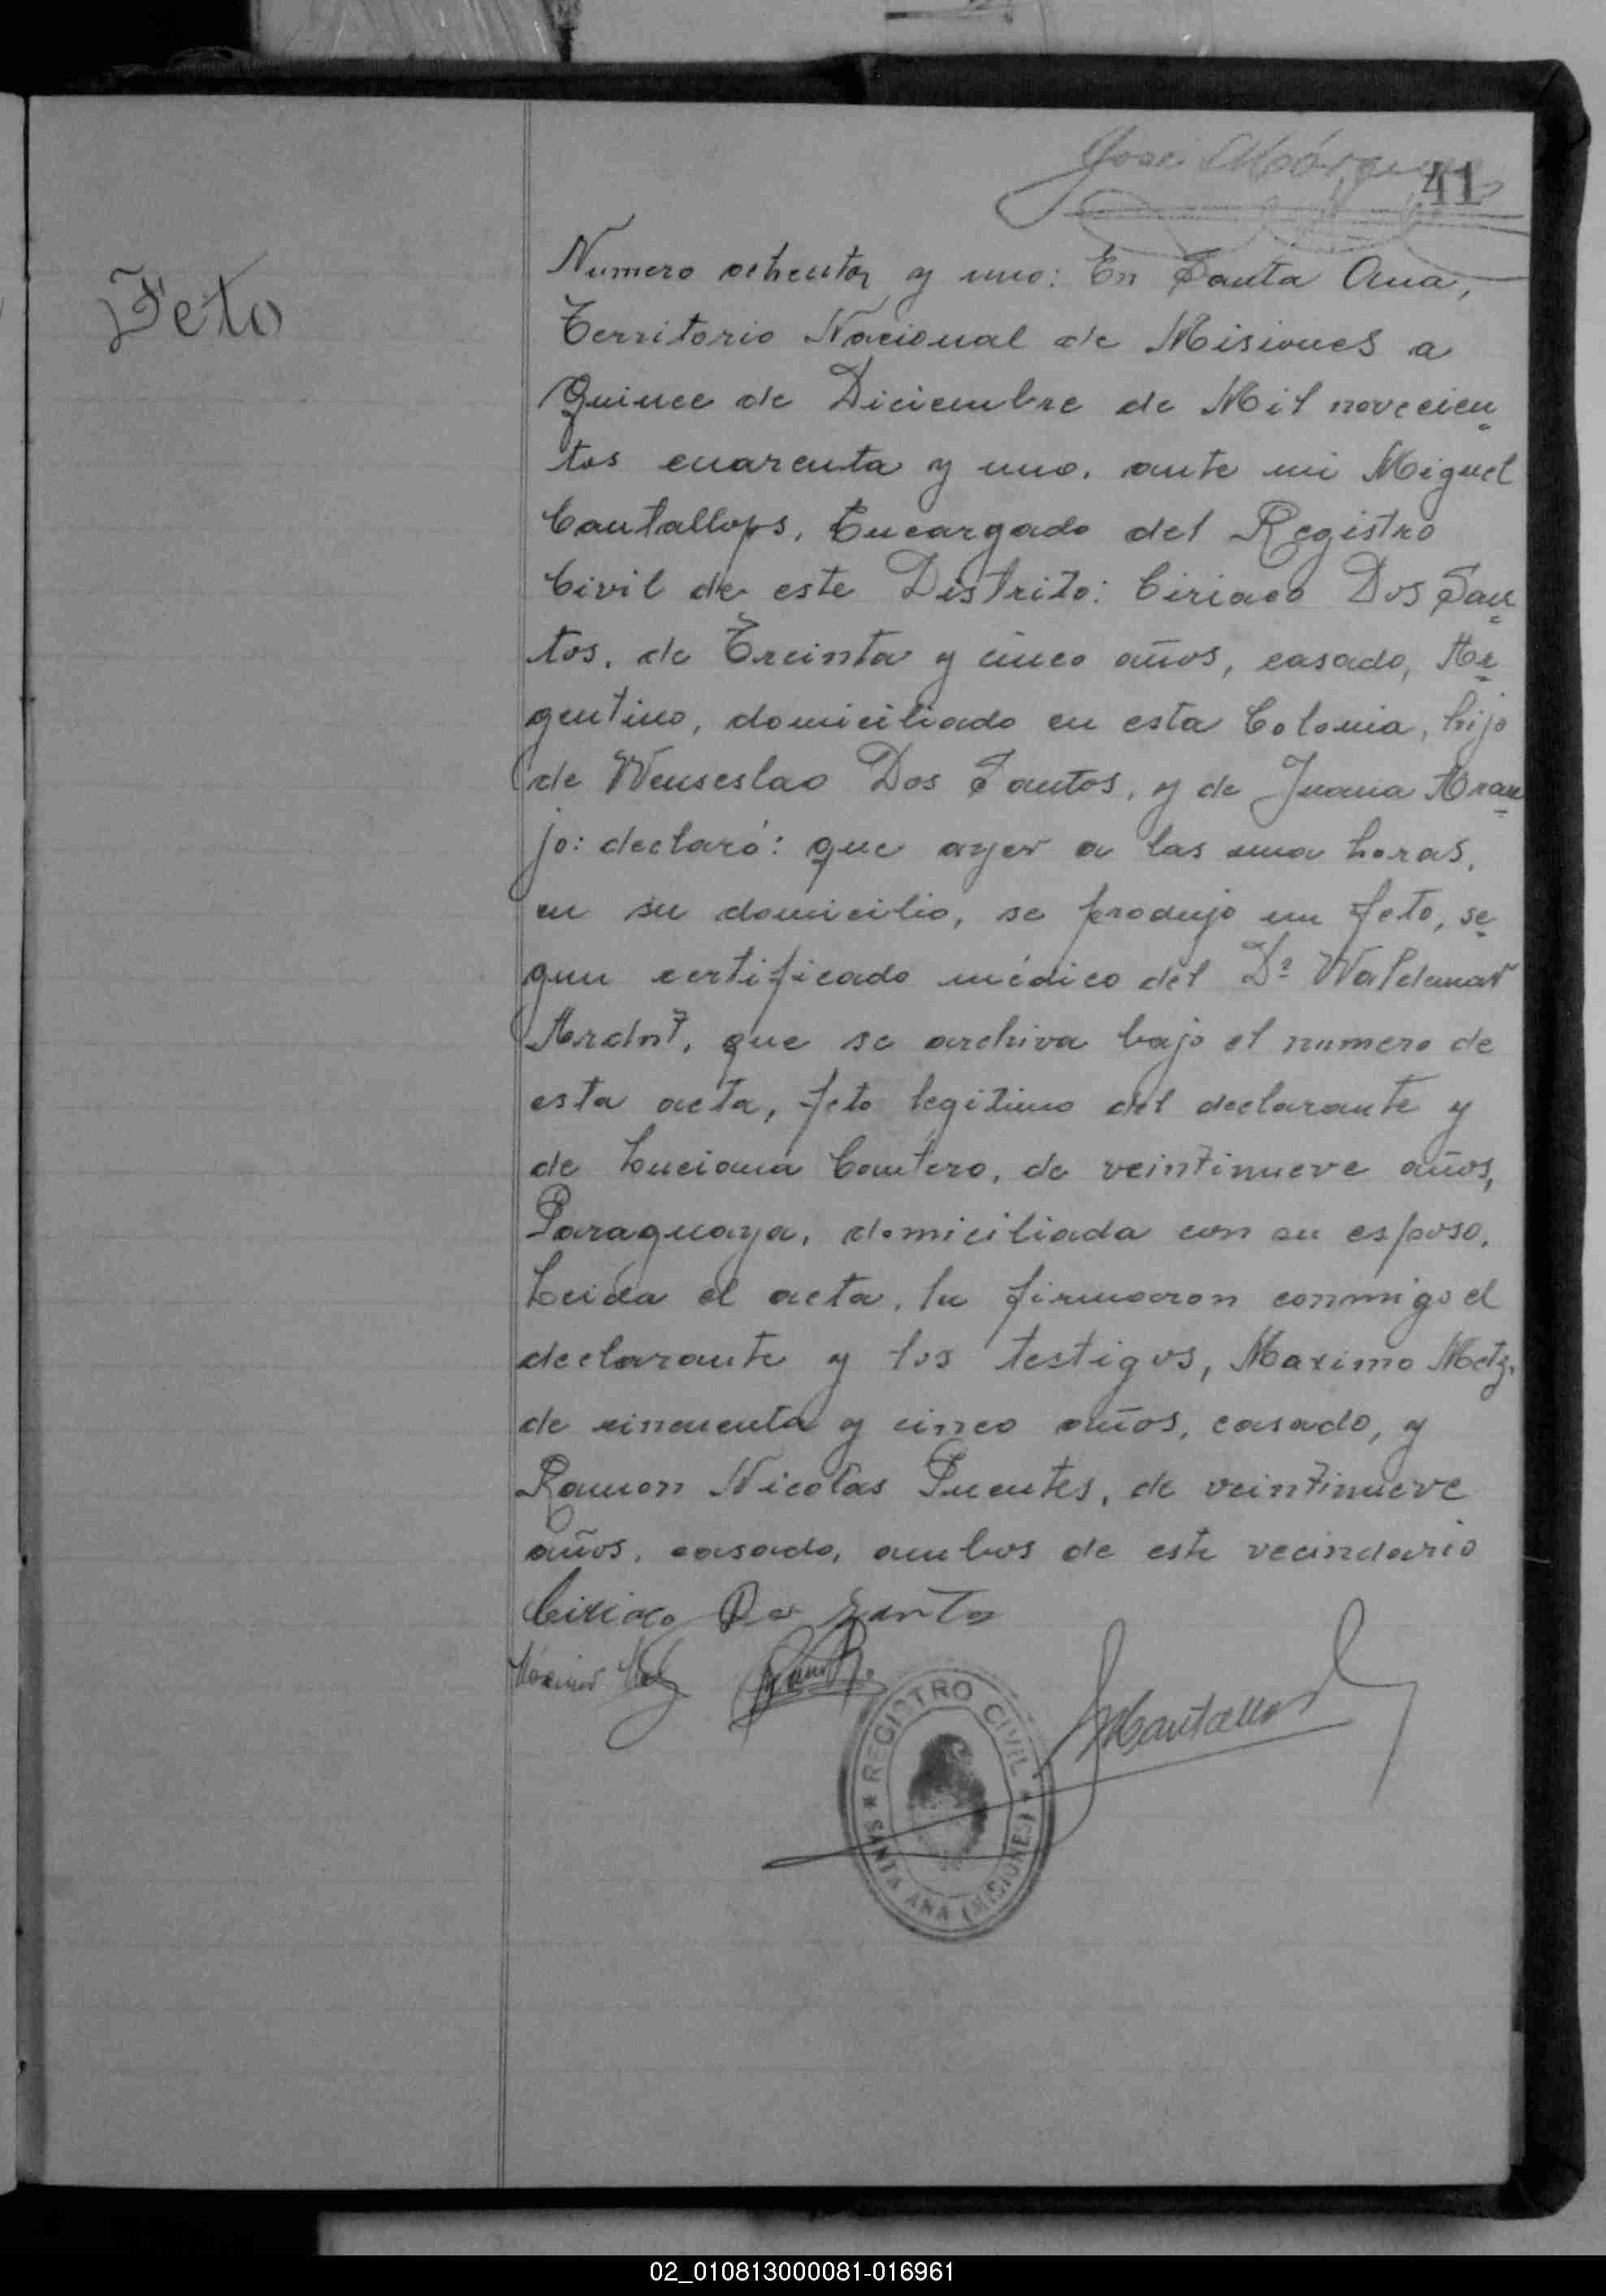 José
41
Feto
Numero ochenta y uno: En Santa Ana,
Territorio Nacional de Misiones a
Quince de Diciembre de Mil novecien
tos cuarenta y uno. ante mi Miguel
Cantallops, Encargado del Registro
Civil de este Distrito: Ciriaco Dos San
tos, de Treinta y cinco años, casado, Ar
gentino, domiciliado en esta Colonia, hijo
de Wenseslao Dos Santos, y de Juana Arau
jo: declaró: que ayer a las una horas,
en su domicilio, se produjo un feto, se
gun certificado médico del Dr Waldemar
Ardnt, que se archiva bajo el numero de
esta acta, feto legitimo del declarante y
de Luciana Cantero, de veintinueve años,
Paraguaya, domiciliada con su esposo.
Leida el acta, la firmaron conmigo el
declarante y los testigos, Maximo Metz,
de cincuenta y cinco años, casado, y
Ramon Nicolas Puentes, de veintinueve
años, casado, ambos de este vecindario
Ciriaco Dos Santos
Máximo Metz
MCantallops
REGISTRO CIVIL
SANTA ANA (MISIONES)
02_010813000081-016961